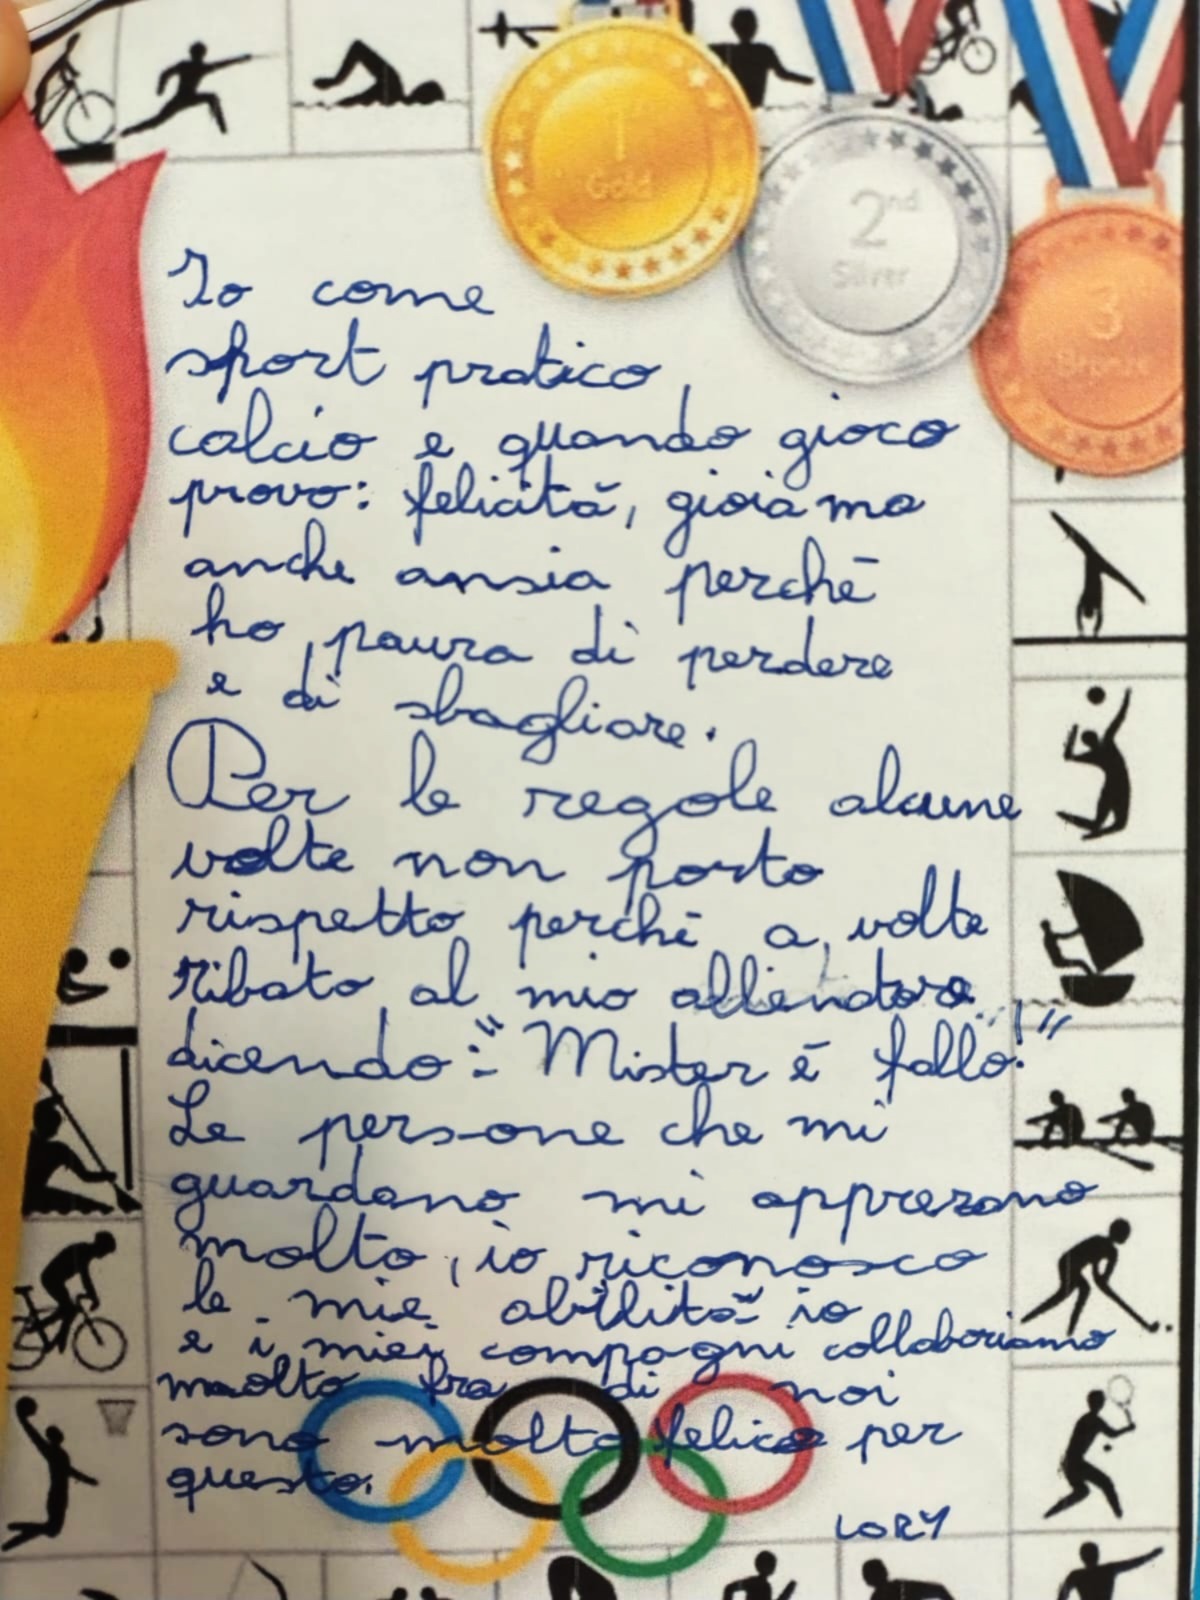 1
Gold
2nd
Silver
3
Bronze
Io come
sport pratico
calcio e quando gioco
provo: felicità, gioia ma
anche ansia perchè
ho paura di perdere
e di sbagliare.
Per le regole alcune
volte non porto
rispetto perchè a volte
ribato al mio allendore
dicendo:" Mister è fallo!"
Le persone che mi
guardano mi apprezano
molto, io riconosco
le mie abilità io
e i miei compagni collaboriamo
molto fra di noi
sono molto felice per
questo.
LORY